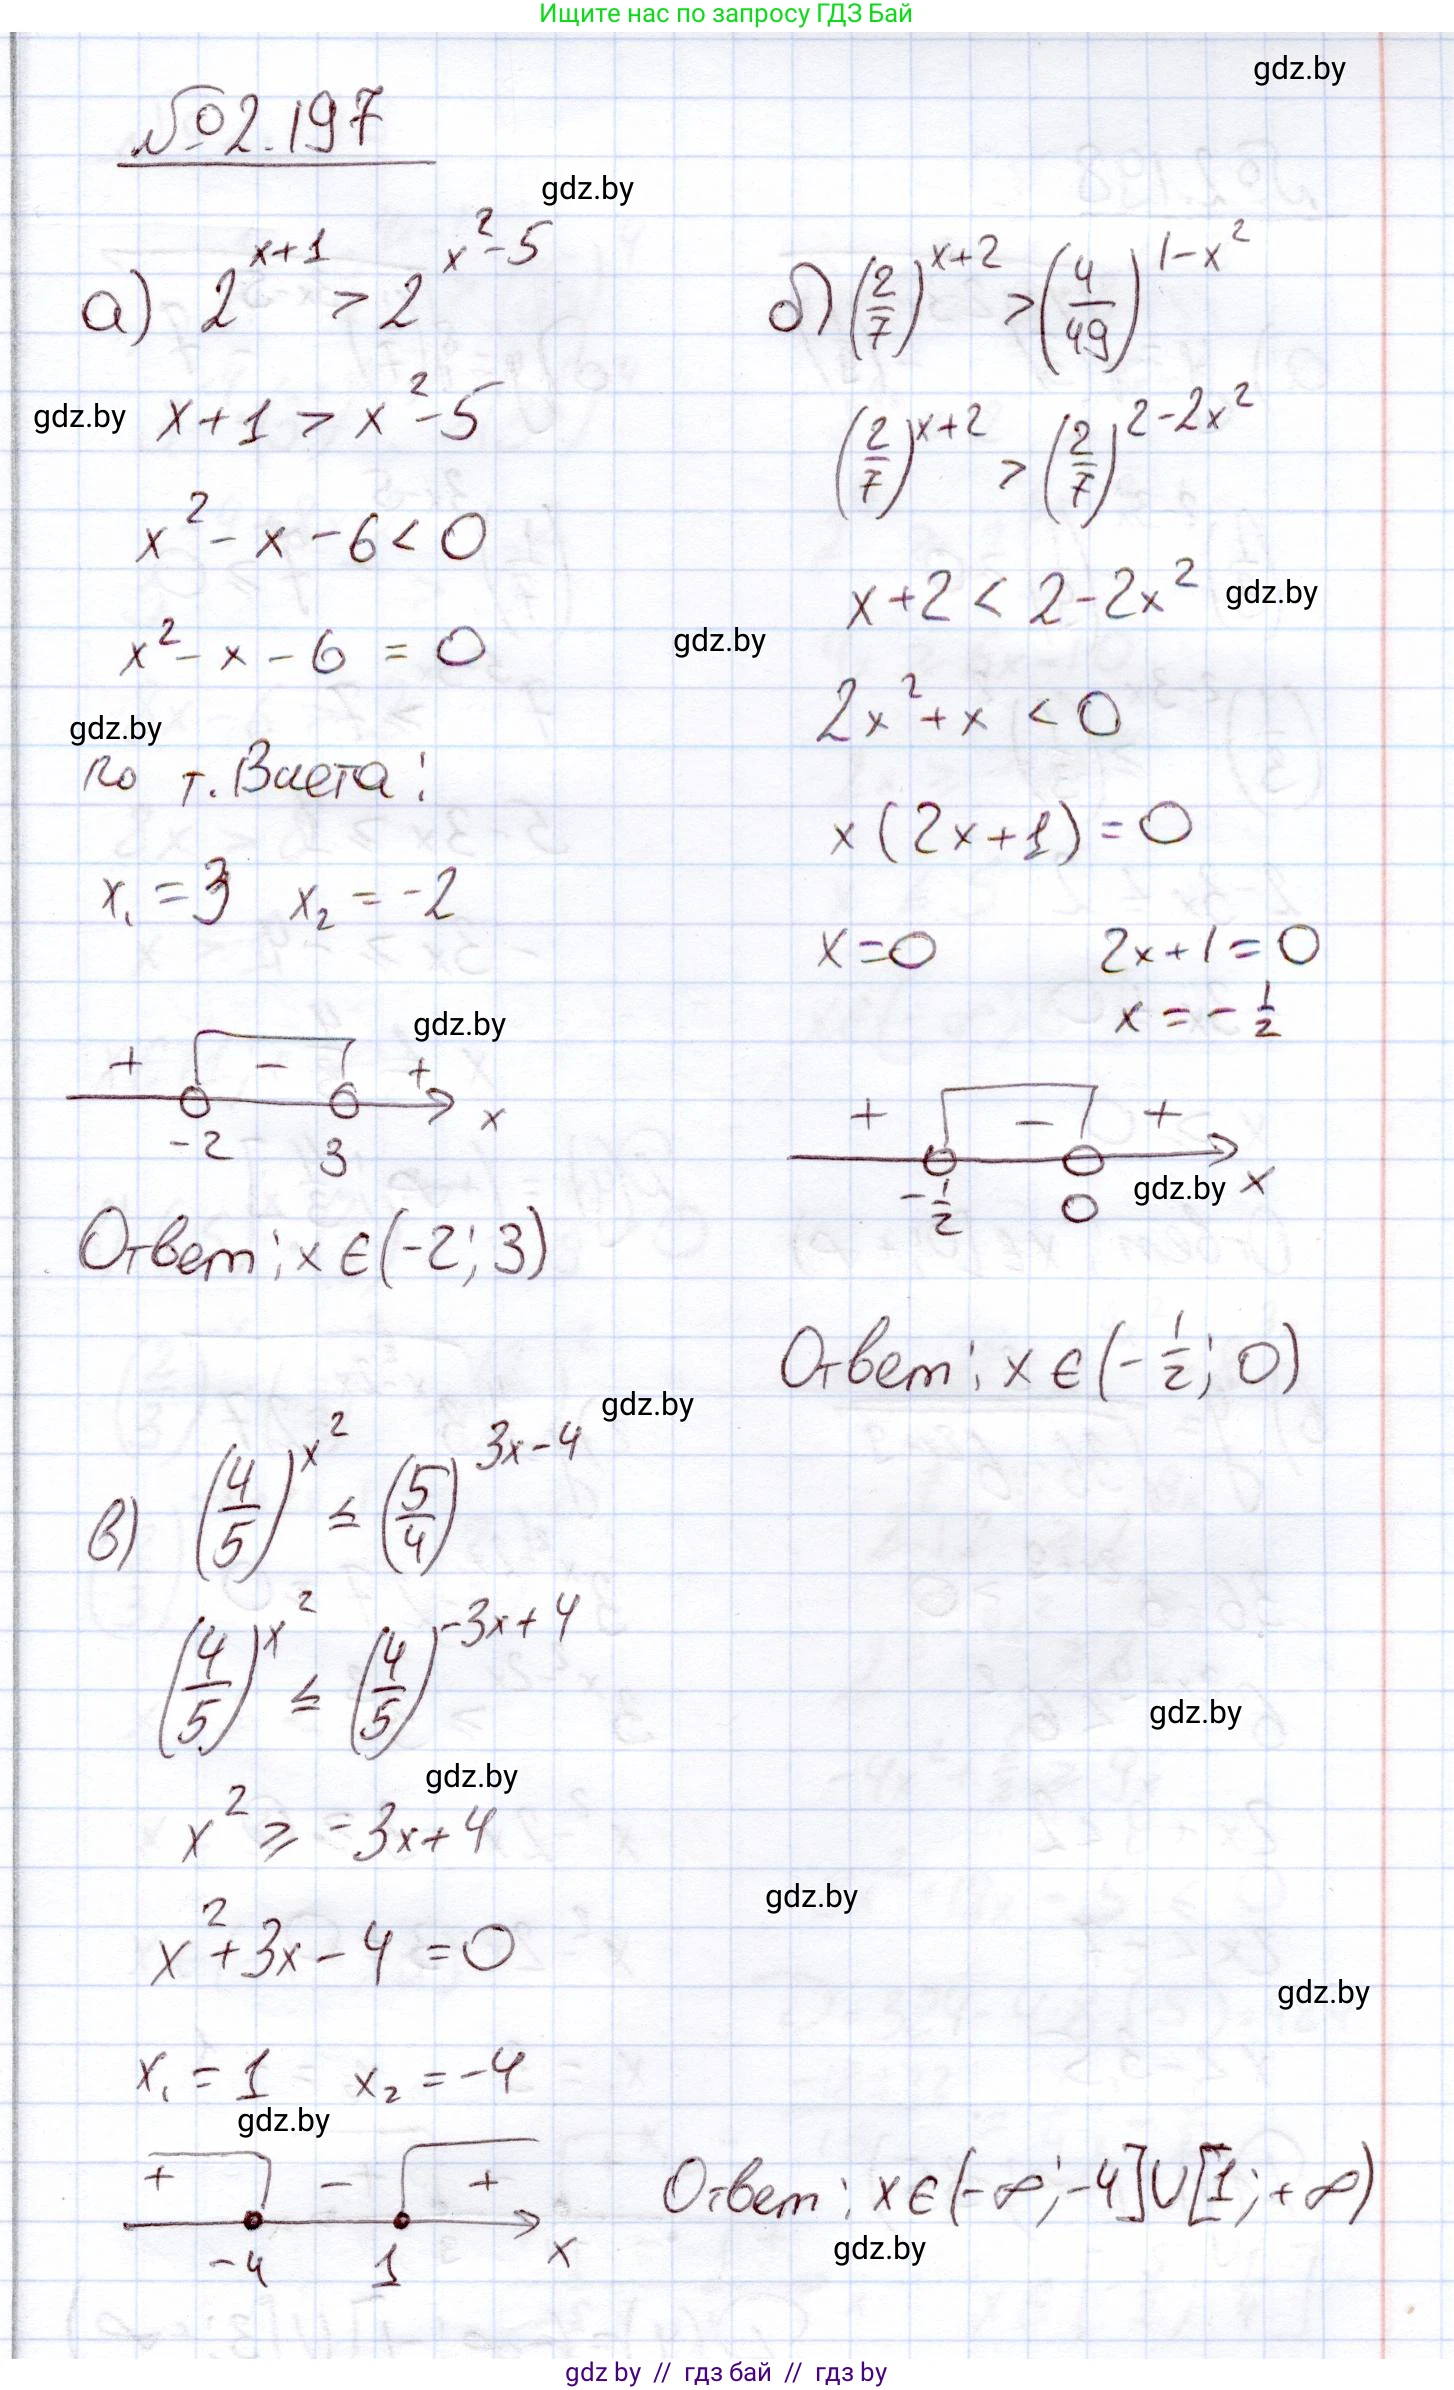 Ищите нас по запросу ГДЗ Бай
gdz.by
№2.197
gdz.by
а) 2^(x+1) > 2^(x²-5)
gdz.by
x+1 > x²-5
x²-x-6<0
x²-x-6=0
gdz.by
по т. Виета:
x₁=3 x₂=-2
gdz.by
+ - + x
-2 3
Ответ: x∈(-2; 3)
б) (2/7)^(x+2) > (4/49)^(1-x²)
(2/7)^(x+2) > (2/7)^(2-2x²)
x+2 < 2-2x²
gdz.by
gdz.by
2x²+x < 0
x(2x+1)=0
x=0 2x+1=0
x=-1/2
+ - + x
-1/2 0
gdz.by
Ответ: x∈(-1/2; 0)
gdz.by
в) (4/5)^(x²) ≤ (5/4)^(3x-4)
(4/5)^(x²) ≤ (4/5)^(-3x+4)
gdz.by
gdz.by
x² ≥ -3x+4
gdz.by
x²+3x-4=0
gdz.by
x₁=1 x₂=-4
gdz.by
+ - + x
-4 1
Ответ: x∈(-∞; -4]∪[1; +∞)
gdz.by
gdz by // гдз бай // гдз by